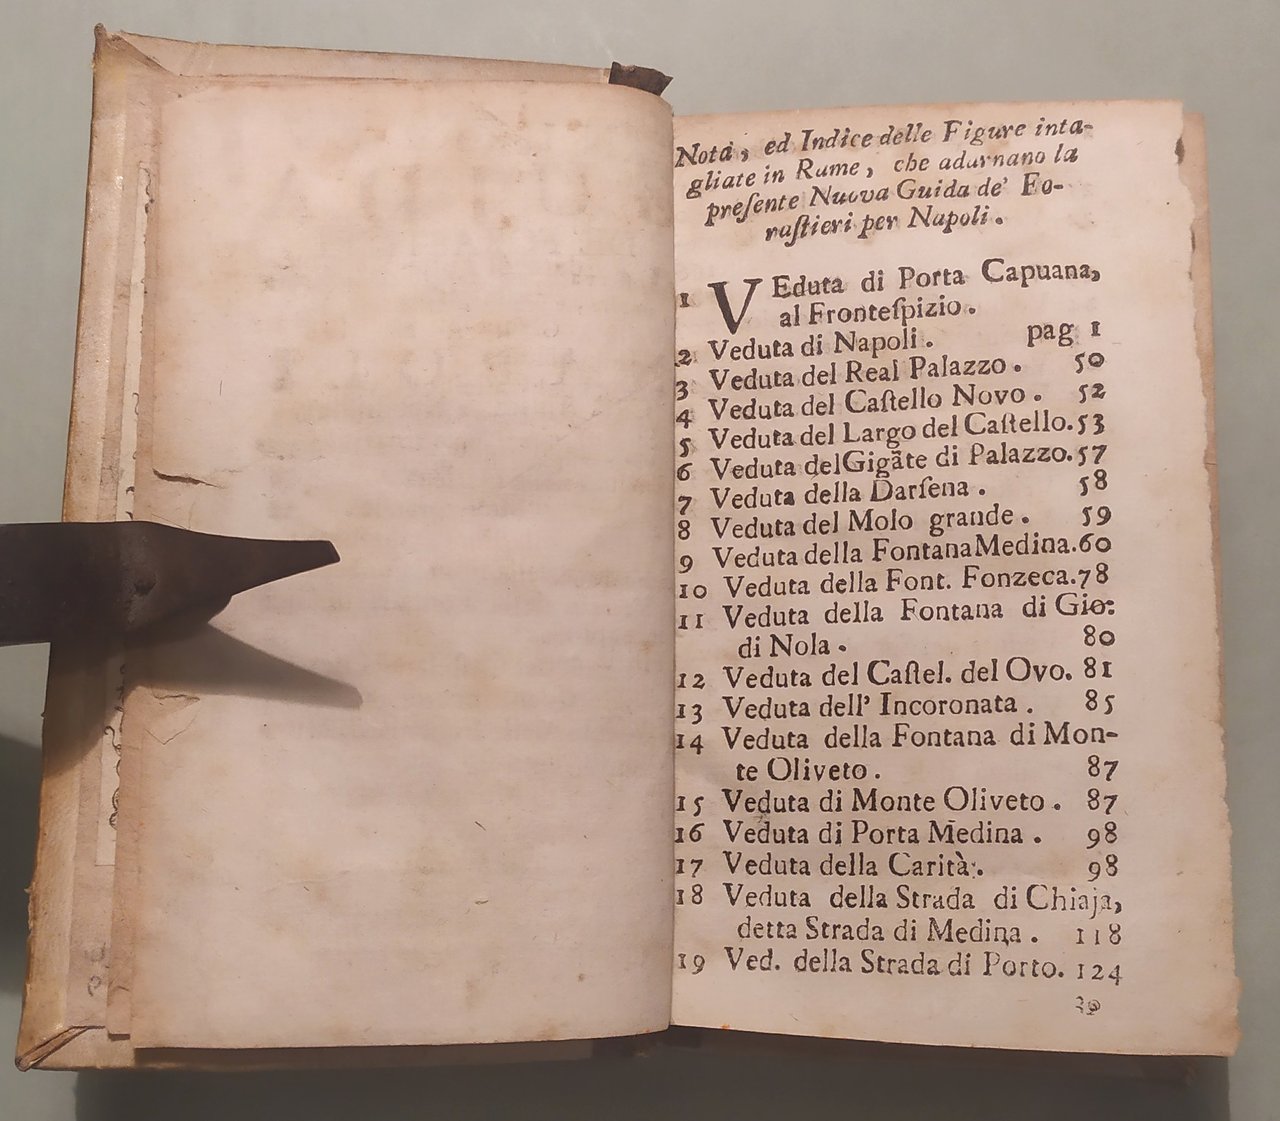 Nota, ed Indice delle Figure inta-
gliate in Rame, che adornano la
preſente Nuova Guida de' Fo-
raſtieri per Napoli.
1 VEduta di Porta Capuana,
al Fronteſpizio.
2 Veduta di Napoli. pag 1
3 Veduta del Real Palazzo. 50
4 Veduta del Caſtello Novo. 52
5 Veduta del Largo del Caſtello. 53
6 Veduta del Gigãte di Palazzo. 57
7 Veduta della Darſena. 58
8 Veduta del Molo grande. 59
9 Veduta della Fontana Medina. 60
10 Veduta della Font. Fonzeca. 78
11 Veduta della Fontana di Gio:
di Nola. 80
12 Veduta del Caſtel. del Ovo. 81
13 Veduta dell' Incoronata. 85
14 Veduta della Fontana di Mon-
te Oliveto. 87
15 Veduta di Monte Oliveto. 87
16 Veduta di Porta Medina. 98
17 Veduta della Carità. 98
18 Veduta della Strada di Chiaja,
detta Strada di Medina. 118
19 Ved. della Strada di Porto. 124